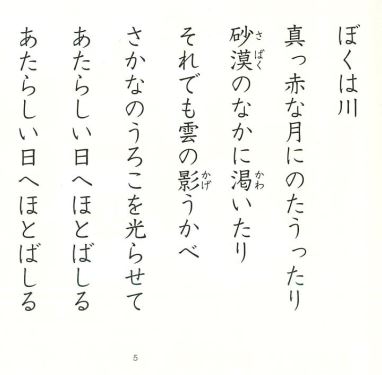 ぼくは川
真っ赤な月にのたうったり
砂漠のなかに渇いたり
それでも雲の影うかべ
さかなのうろこを光らせて
あたらしい日へほとばしる
あたらしい日へほとばしる
さばく
かわ
かげ
5